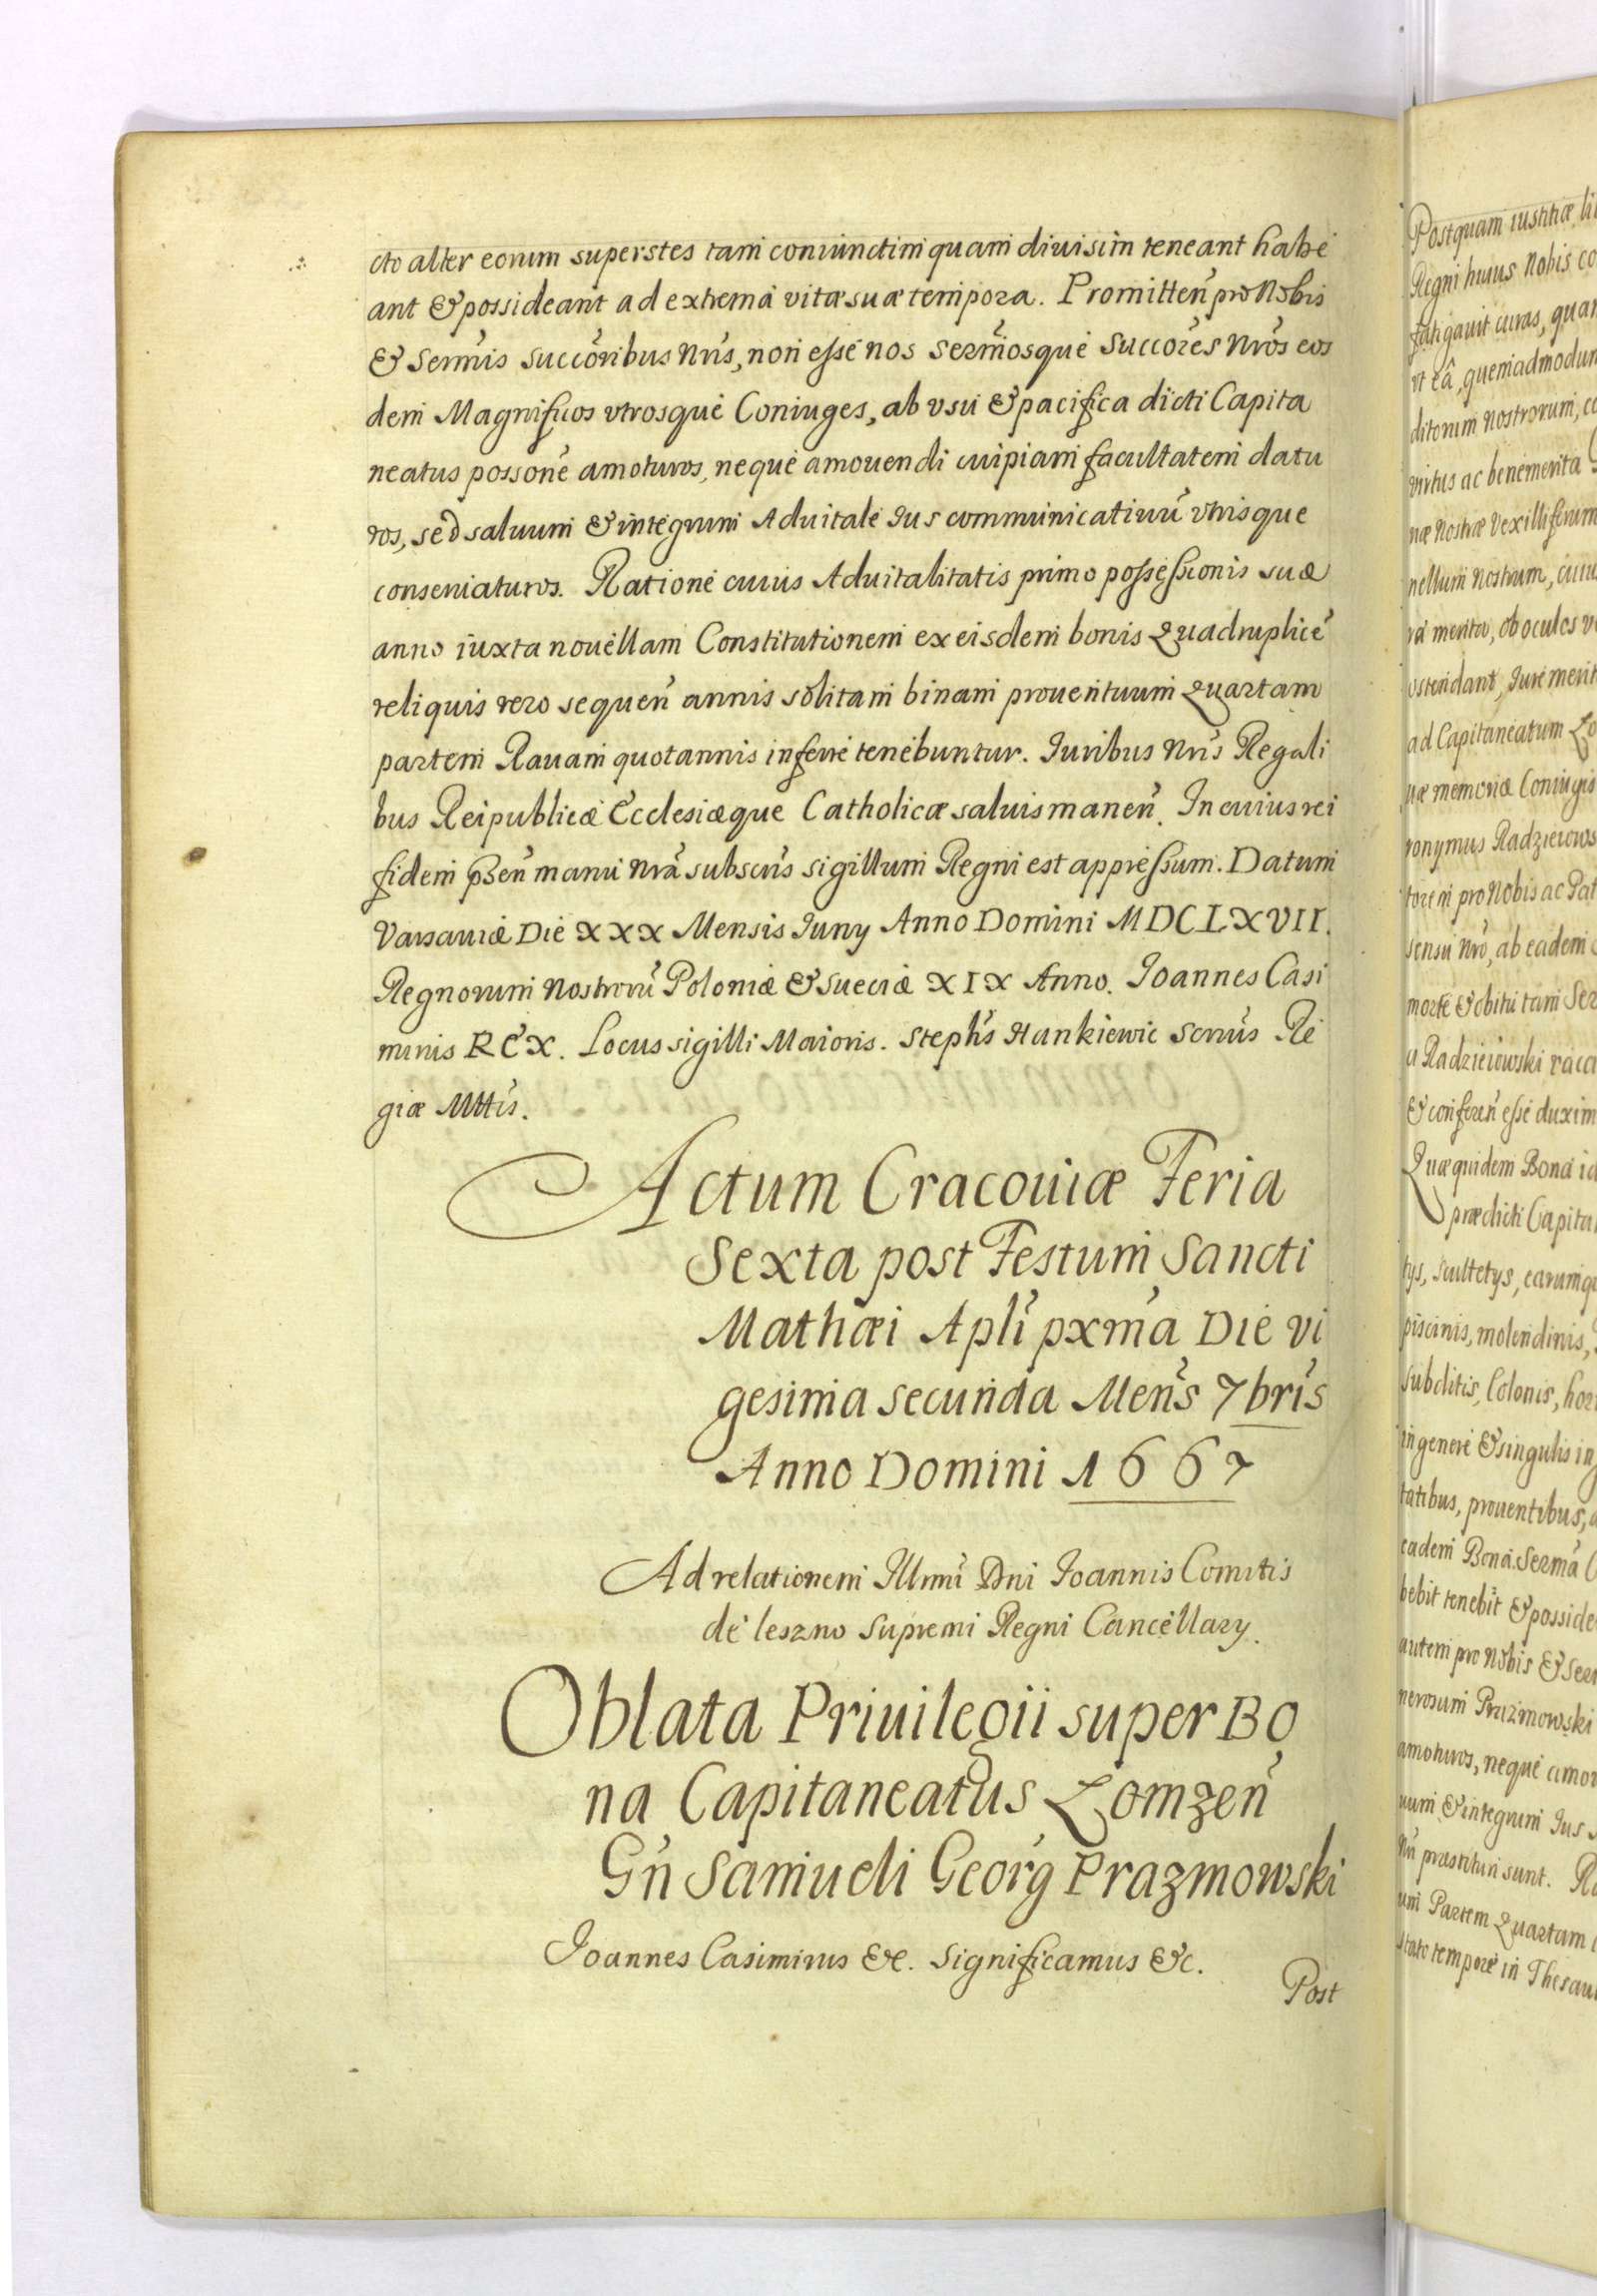 cto alter eorum superstes tam coniunctim quam diuisim teneant habe
ant & possideant ad extrema vitæ suæ tempora. Promitteñ pro Nobis
& Sermis Succoribus Nris, non esse nos Sermosque Succores Nros eos
dem Magnificos vtrosque Coniuges, ab vsu & pacifica dicti Capita
neatus possone amoturos, neque amouendi cuipiam facultatem datu
ros, sed saluum & integrum Aduitale Ius communicatiuū vtrisque
conseruaturos. Ratione cuius Aduitalitatis primo possessionis suæ
anno iuxta nouellam Constitutionem ex eisdem bonis Quadruplicē
reliquis vero sequeñ annis solitam binam prouentuum Quartam
partem Rauam quotannis inferre tenebuntur. Iuribus Nris Regali
bus Reipublicæ Ecclesiæque Catholicæ saluis maneñ. In cuius rei
fidem pñseñ manu Nra subscris sigillum Regni est appressum. Datum
Varsauiæ Die XXX Mensis Iuny Anno Domini MDCLXVII.
Regnorum Nostrorū Poloniæ & Sueciæ XIX Anno. Ioannes Casi
mirus REX. Locus sigilli Maioris. Stephs Hankiewic Scrius Re
giæ Mttis.
Actum Cracouiæ Feria
Sexta post Festum Sancti
Mathæi Apli pxma Die vi
gesima secunda Mens 7bris
Anno Domini 1667
Ad relationem Illmi Dni Ioannis Comitis
de leszno Supremi Regni Cancellary.
Oblata Priuilegii super Bo
na Capitaneatus Łomzeñ
Gñ Samueli Georg Prazmowski
Ioannes Casimirus &c. Significamus &c.
Post
Postquam iustitiæ
Regni huius Nobis
fatigauit curas,
vt eâ, quemadmodum
ditorum nostrorum,
virtus ac benemerita
næ Nostræ Vexilliferum
nellum Nostrum,
merita, ob oculos
ostendant, Iure
ad Capitaneatum
memoriæ Coniugis
ronymus Radzieiows
torem pro Nobis ac
sensu Nro, ab eadem
morte & obitu tam
Radzieiowski
& confereñ esse
Quæquidem Bona
prædicti
scultetys,
piscinis, molendinis,
subditis, Colonis,
in genere & singulis
tatibus, prouentibus,
eadem Bona Serma
bebit tenebit &
autem pro Nobis &
nerosum Prazmowski
amoturos, neque
uum & integrum Ius
præstituri sunt.
Partem Quartam
tempore in